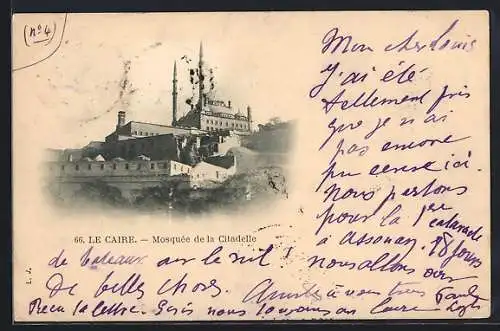 (nº 4)
Mon cher Louis
J'ai été
tellement pris
que je n'ai
pas encore
pu ici.
Nous partons
pour la 1ere cataracte
à Assouan. 18 jours
66. LE CAIRE. — Mosquée de la Citadelle
L. J.
de bateau sur le nil! Nous allons voir
de belles choses. Amitiés à vous tous
Reçu la lettre nous toujours au Caire